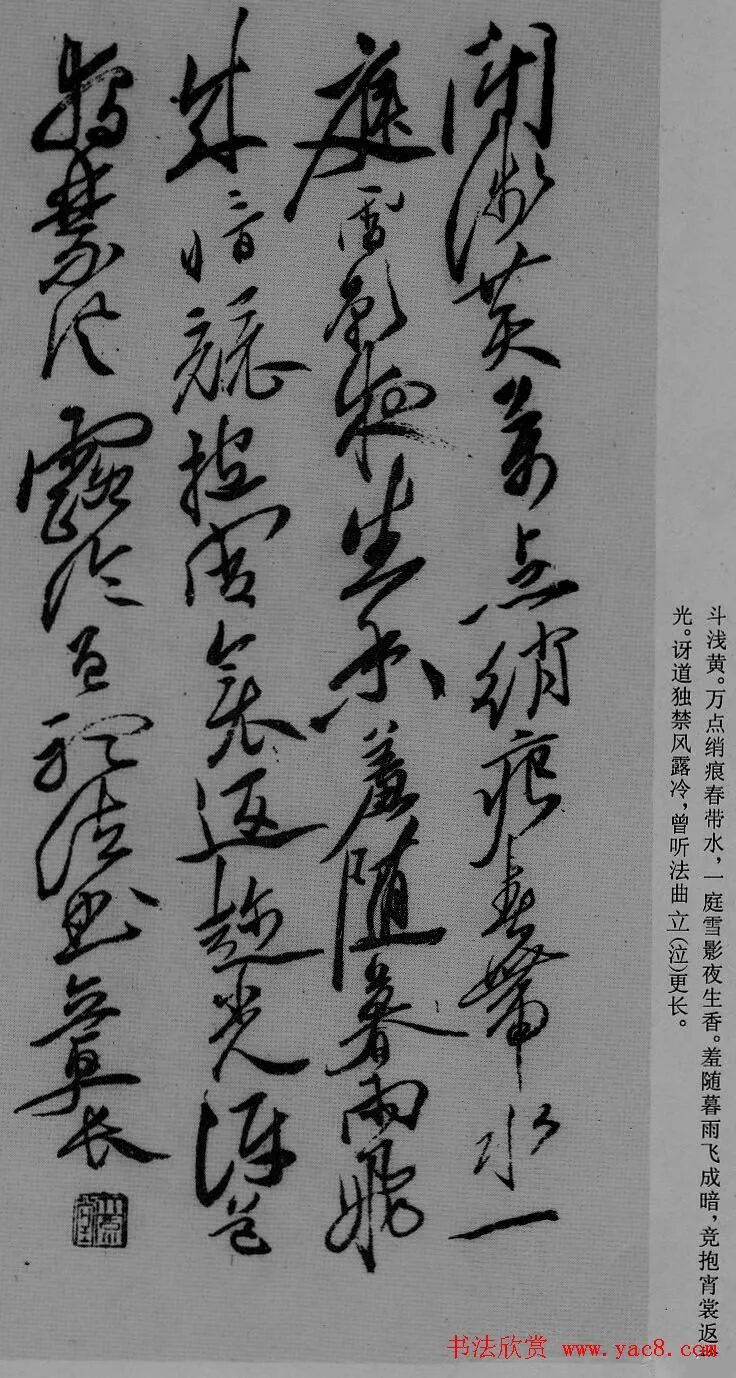 斗浅黄。万点绡痕春带水，一庭雪影夜生香。羞随暮雨飞成暗，竞抱宵裳返
光。讶道独禁风露冷，曾听法曲立(泣)更长。
闘浅黄萬点綃痕春帶水一
庭雪影夜生香羞随暮雨飛
成暗競抱宵裳返趂光訝道
獨禁風露冷曾聽法曲立更長
书法欣赏 www.yac8.com